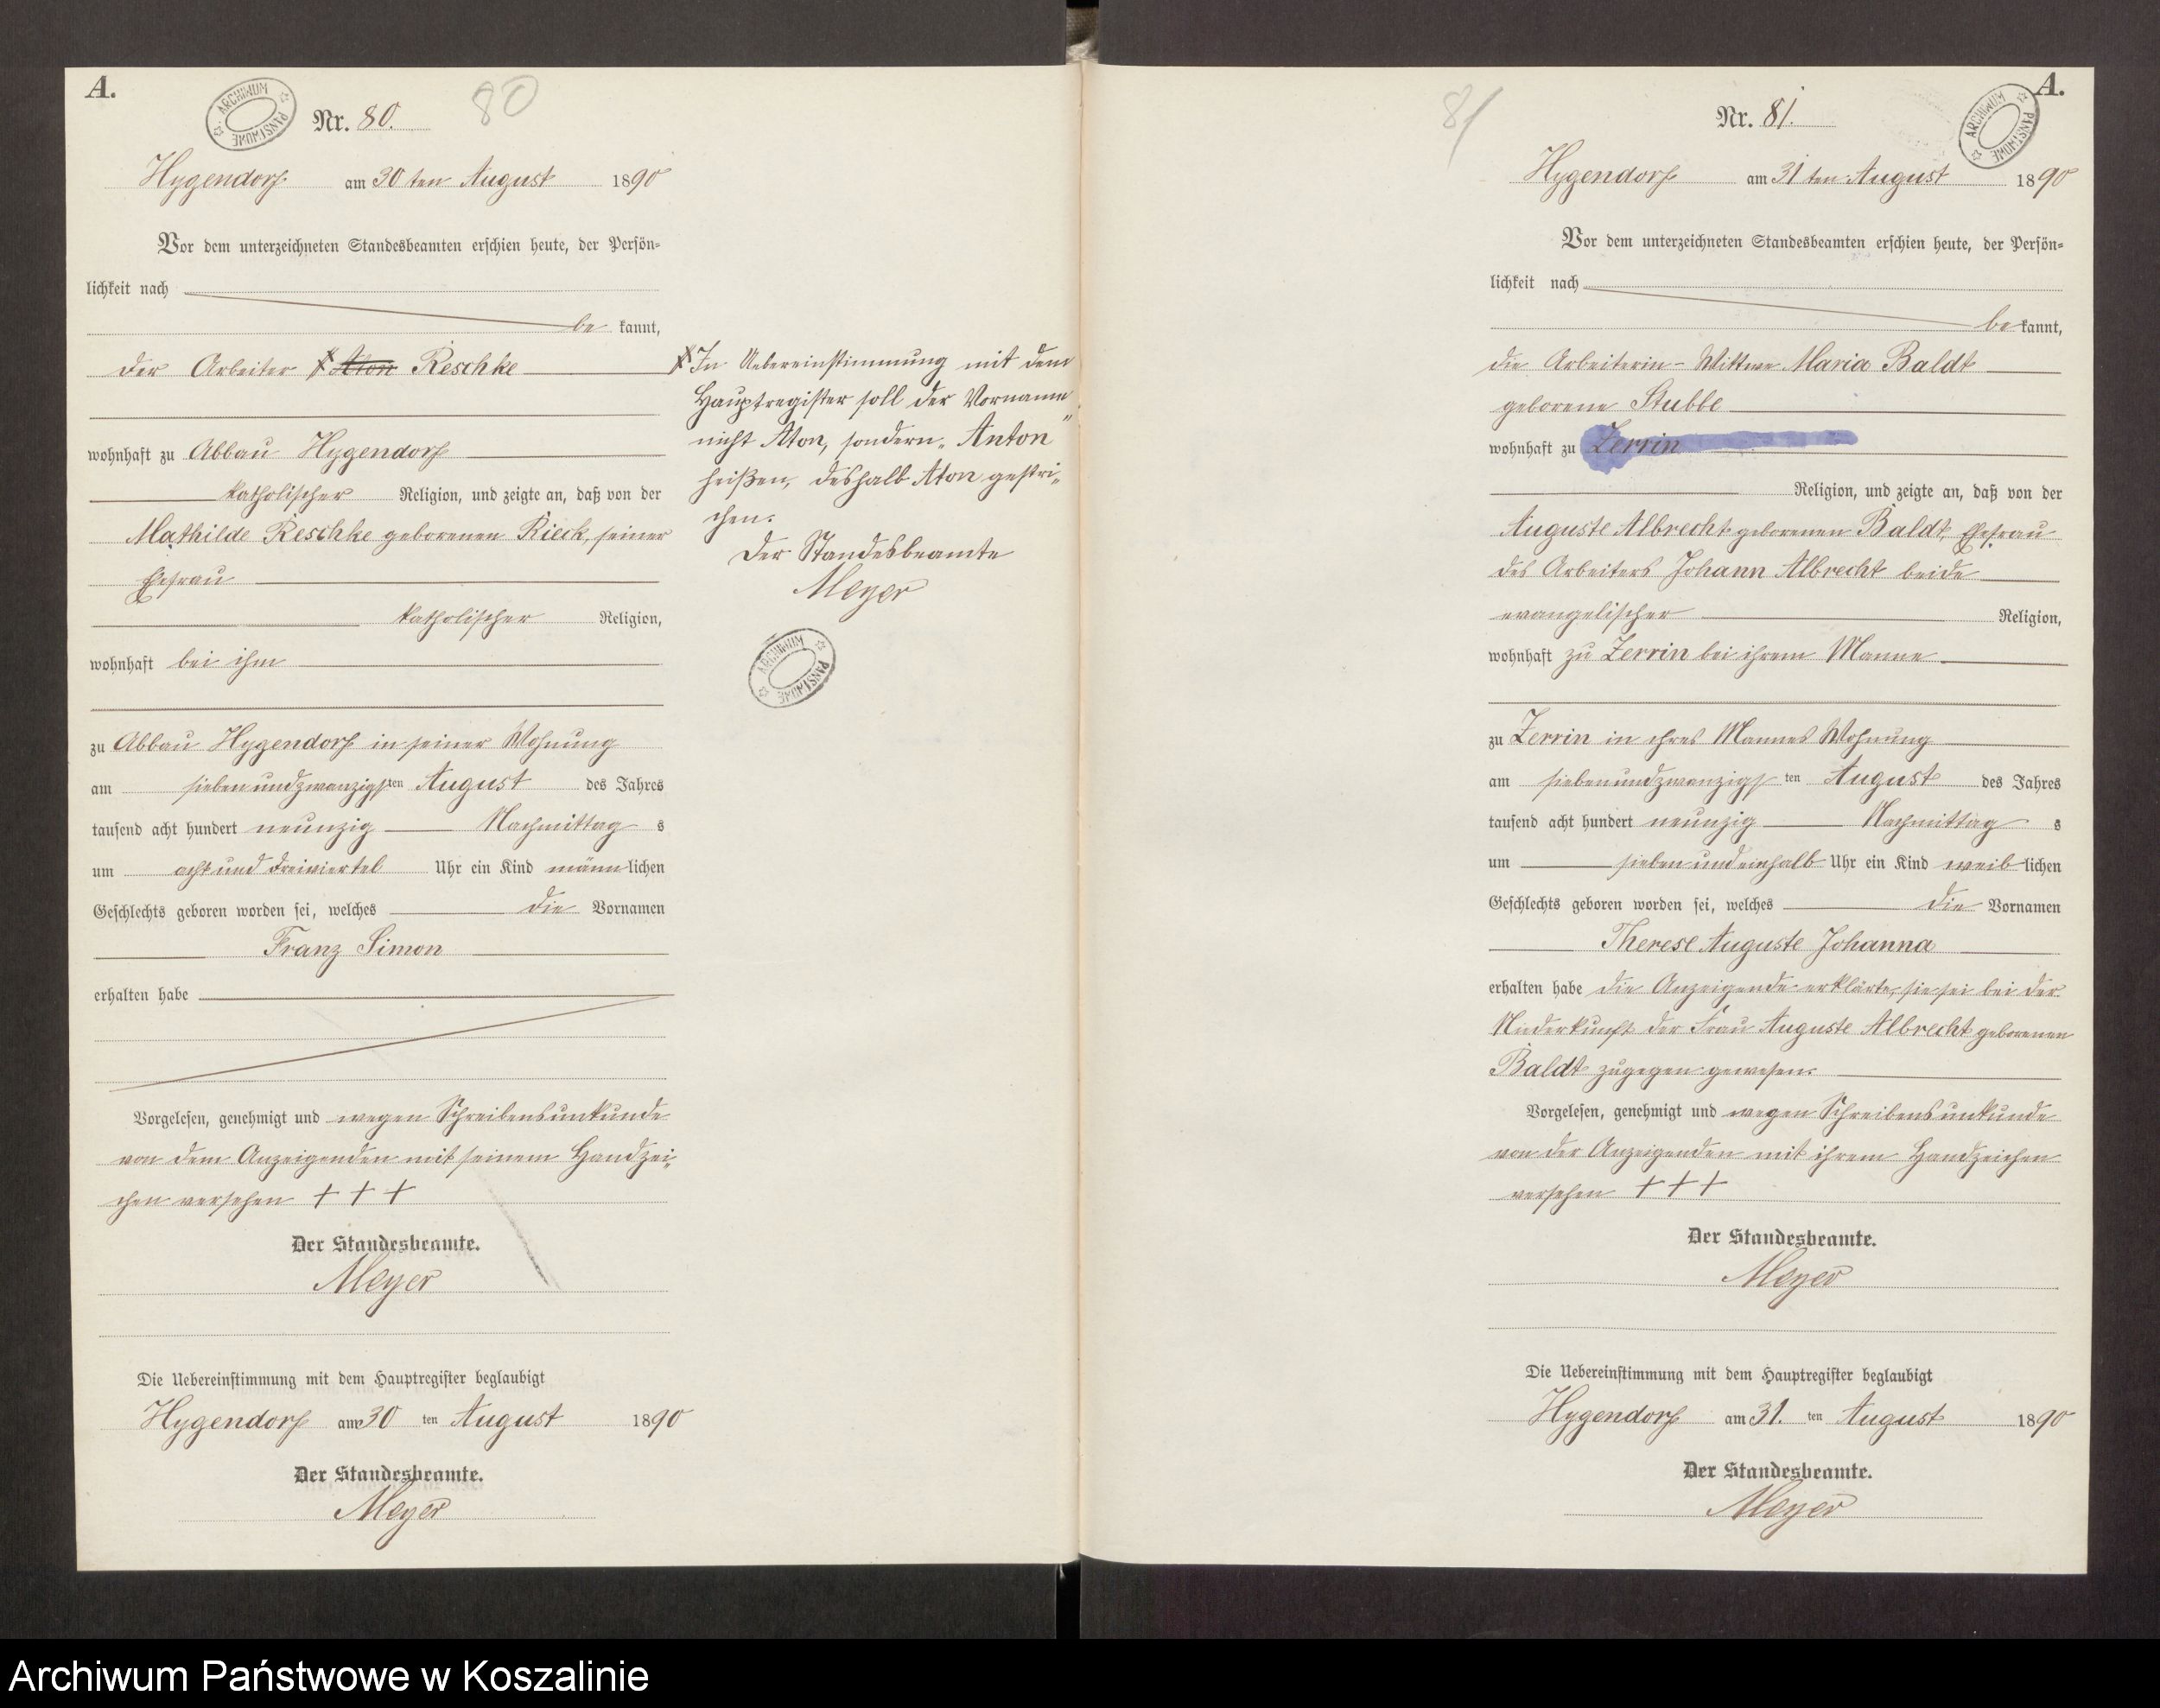 A.
ARCHIWUM PAŃSTWOWE
Nr. 80.
80
Hygendorf am 30 ten August 1890
Vor dem unterzeichneten Standesbeamten erschien heute, der Persön=
lichkeit nach
be kannt,
der Arbeiter Aton Reschke
wohnhaft zu Abbau Hygendorf
katholischer Religion, und zeigte an, daß von der
Mathilde Reschke geborenen Rieck, seiner
Ehefrau
katholischer Religion,
wohnhaft bei ihm
zu Abbau Hygendorf in seiner Wohnung
am siebenundzwanzigsten August des Jahres
tausend acht hundert neunzig Nachmittag s
um acht und dreiviertel Uhr ein Kind männlichen
Geschlechts geboren worden sei, welches die Vornamen
Franz Simon
erhalten habe
Vorgelesen, genehmigt und wegen Schreibensunkunde
von dem Anzeigenden mit seinem Handzei=
chen versehen + + +
Der Standesbeamte.
Meyer
Die Uebereinstimmung mit dem Hauptregister beglaubigt
Hygendorf am 30 ten August 1890
Der Standesbeamte.
Meyer
In Uebereinstimmung mit dem
Hauptregister soll der Vorname
nicht Aton, sondern „Anton"
heißen, deshalb Aton gestri=
chen.
Der Standesbeamte
Meyer
ARCHIWUM PAŃSTWOWE
A.
81
Nr. 81.
ARCHIWUM PAŃSTWOWE
Hygendorf am 31 ten August 1890
Vor dem unterzeichneten Standesbeamten erschien heute, der Persön=
lichkeit nach
be kannt,
die Arbeiterin-Wittwe Maria Baldt
geborene Stubbe
wohnhaft zu Zerrin
Religion, und zeigte an, daß von der
Auguste Albrecht geborenen Baldt, Ehefrau
des Arbeiters Johann Albrecht beide
evangelischer Religion,
wohnhaft zu Zerrin bei ihrem Manne
zu Zerrin in ihres Mannes Wohnung
am siebenundzwanzigs ten August des Jahres
tausend acht hundert neunzig Nachmittag s
um sieben und einhalb Uhr ein Kind weib lichen
Geschlechts geboren worden sei, welches die Vornamen
Therese Auguste Johanna
erhalten habe die Anzeigende erklärte, sie sei bei der
Niederkunft der Frau Auguste Albrecht geborenen
Baldt zugegen gewesen.
Vorgelesen, genehmigt und wegen Schreibensunkunde
von der Anzeigenden mit ihrem Handzeichen
versehen + + +
Der Standesbeamte.
Meyer
Die Uebereinstimmung mit dem Hauptregister beglaubigt
Hygendorf am 31. ten August 1890
Der Standesbeamte.
Meyer
Archiwum Państwowe w Koszalinie